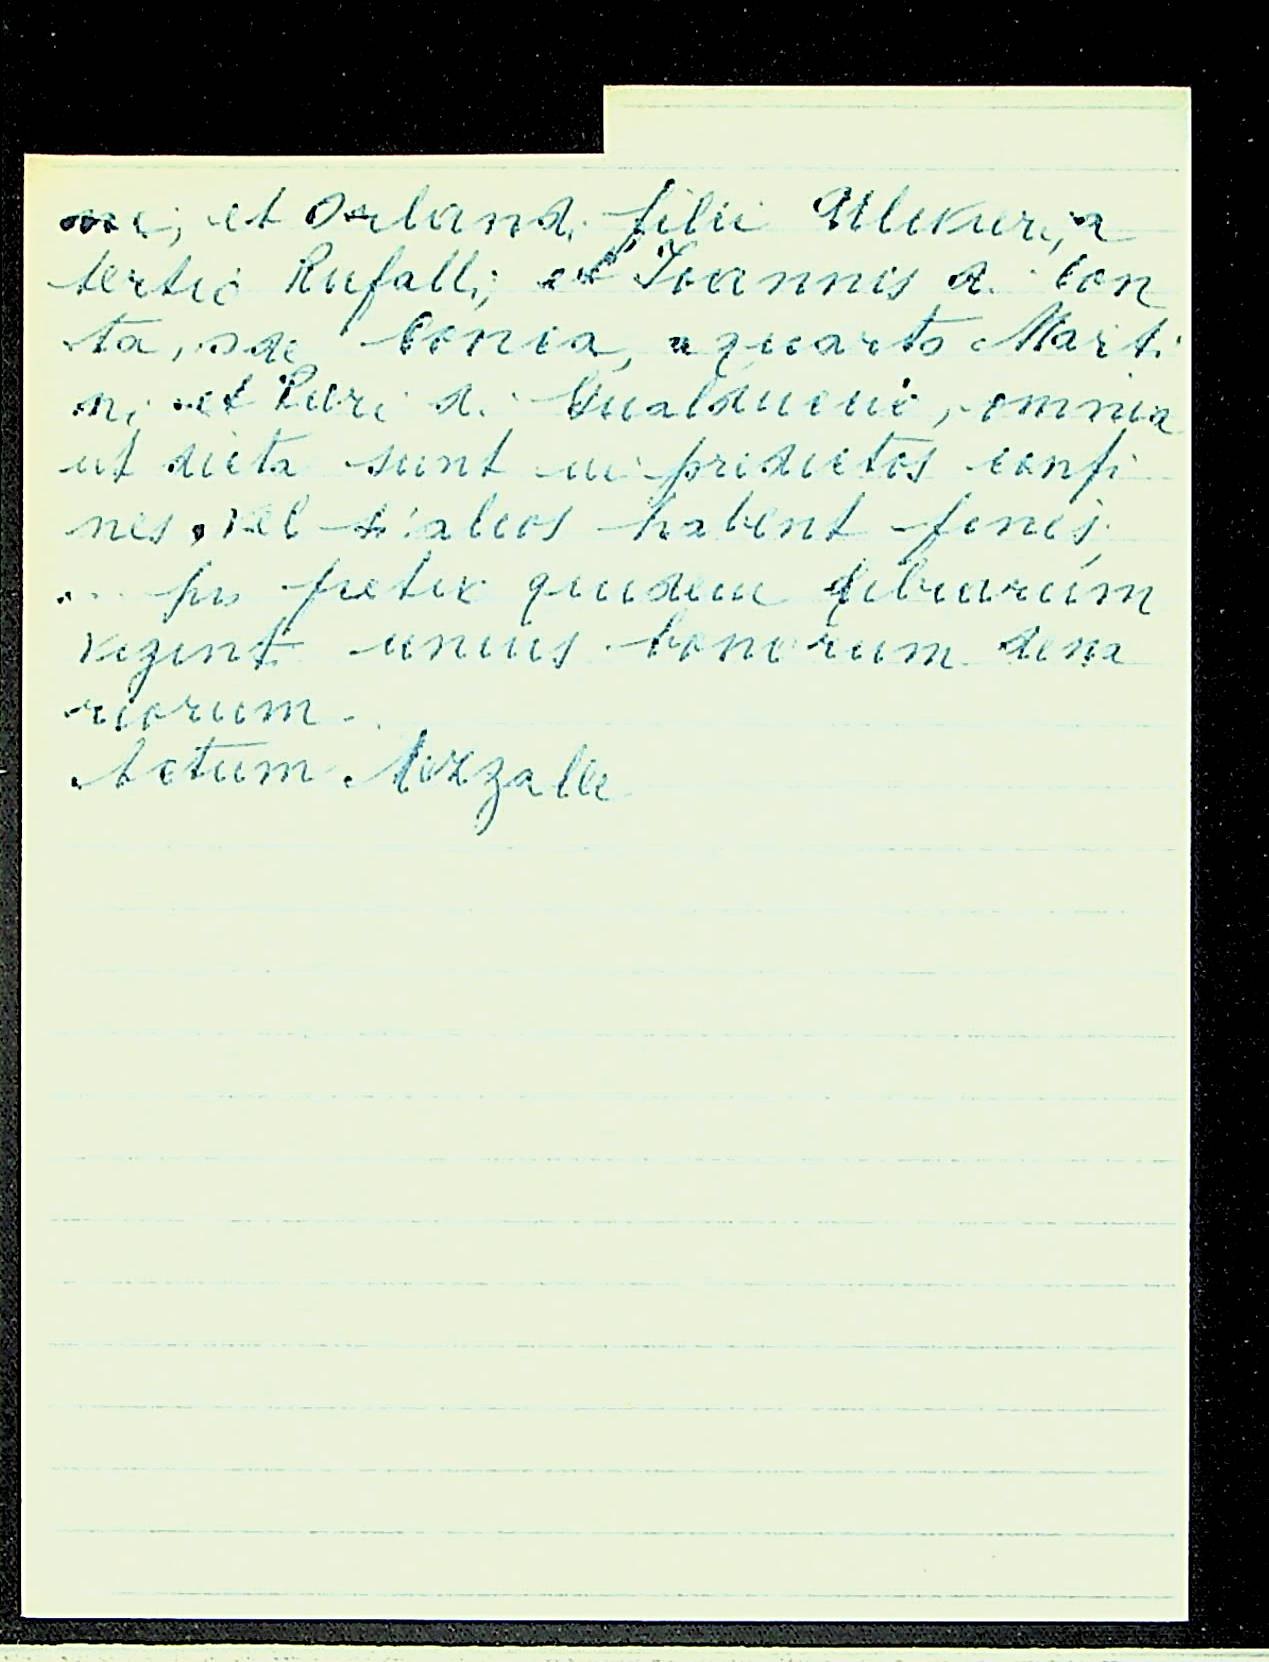 ne; et Orlandi filii Ulivieri, a
tertio Rufalli; et Ioannis di Con
ta, de Conia, a quarto Marti
ni et Puri di Gualducci, omnia
ut dicta sunt in predictos confi
nes, vel si alios habent fines,
... pro pretio quidem librarum
vigenti unius bonorum dena
riorum.
Actum Avezzalli